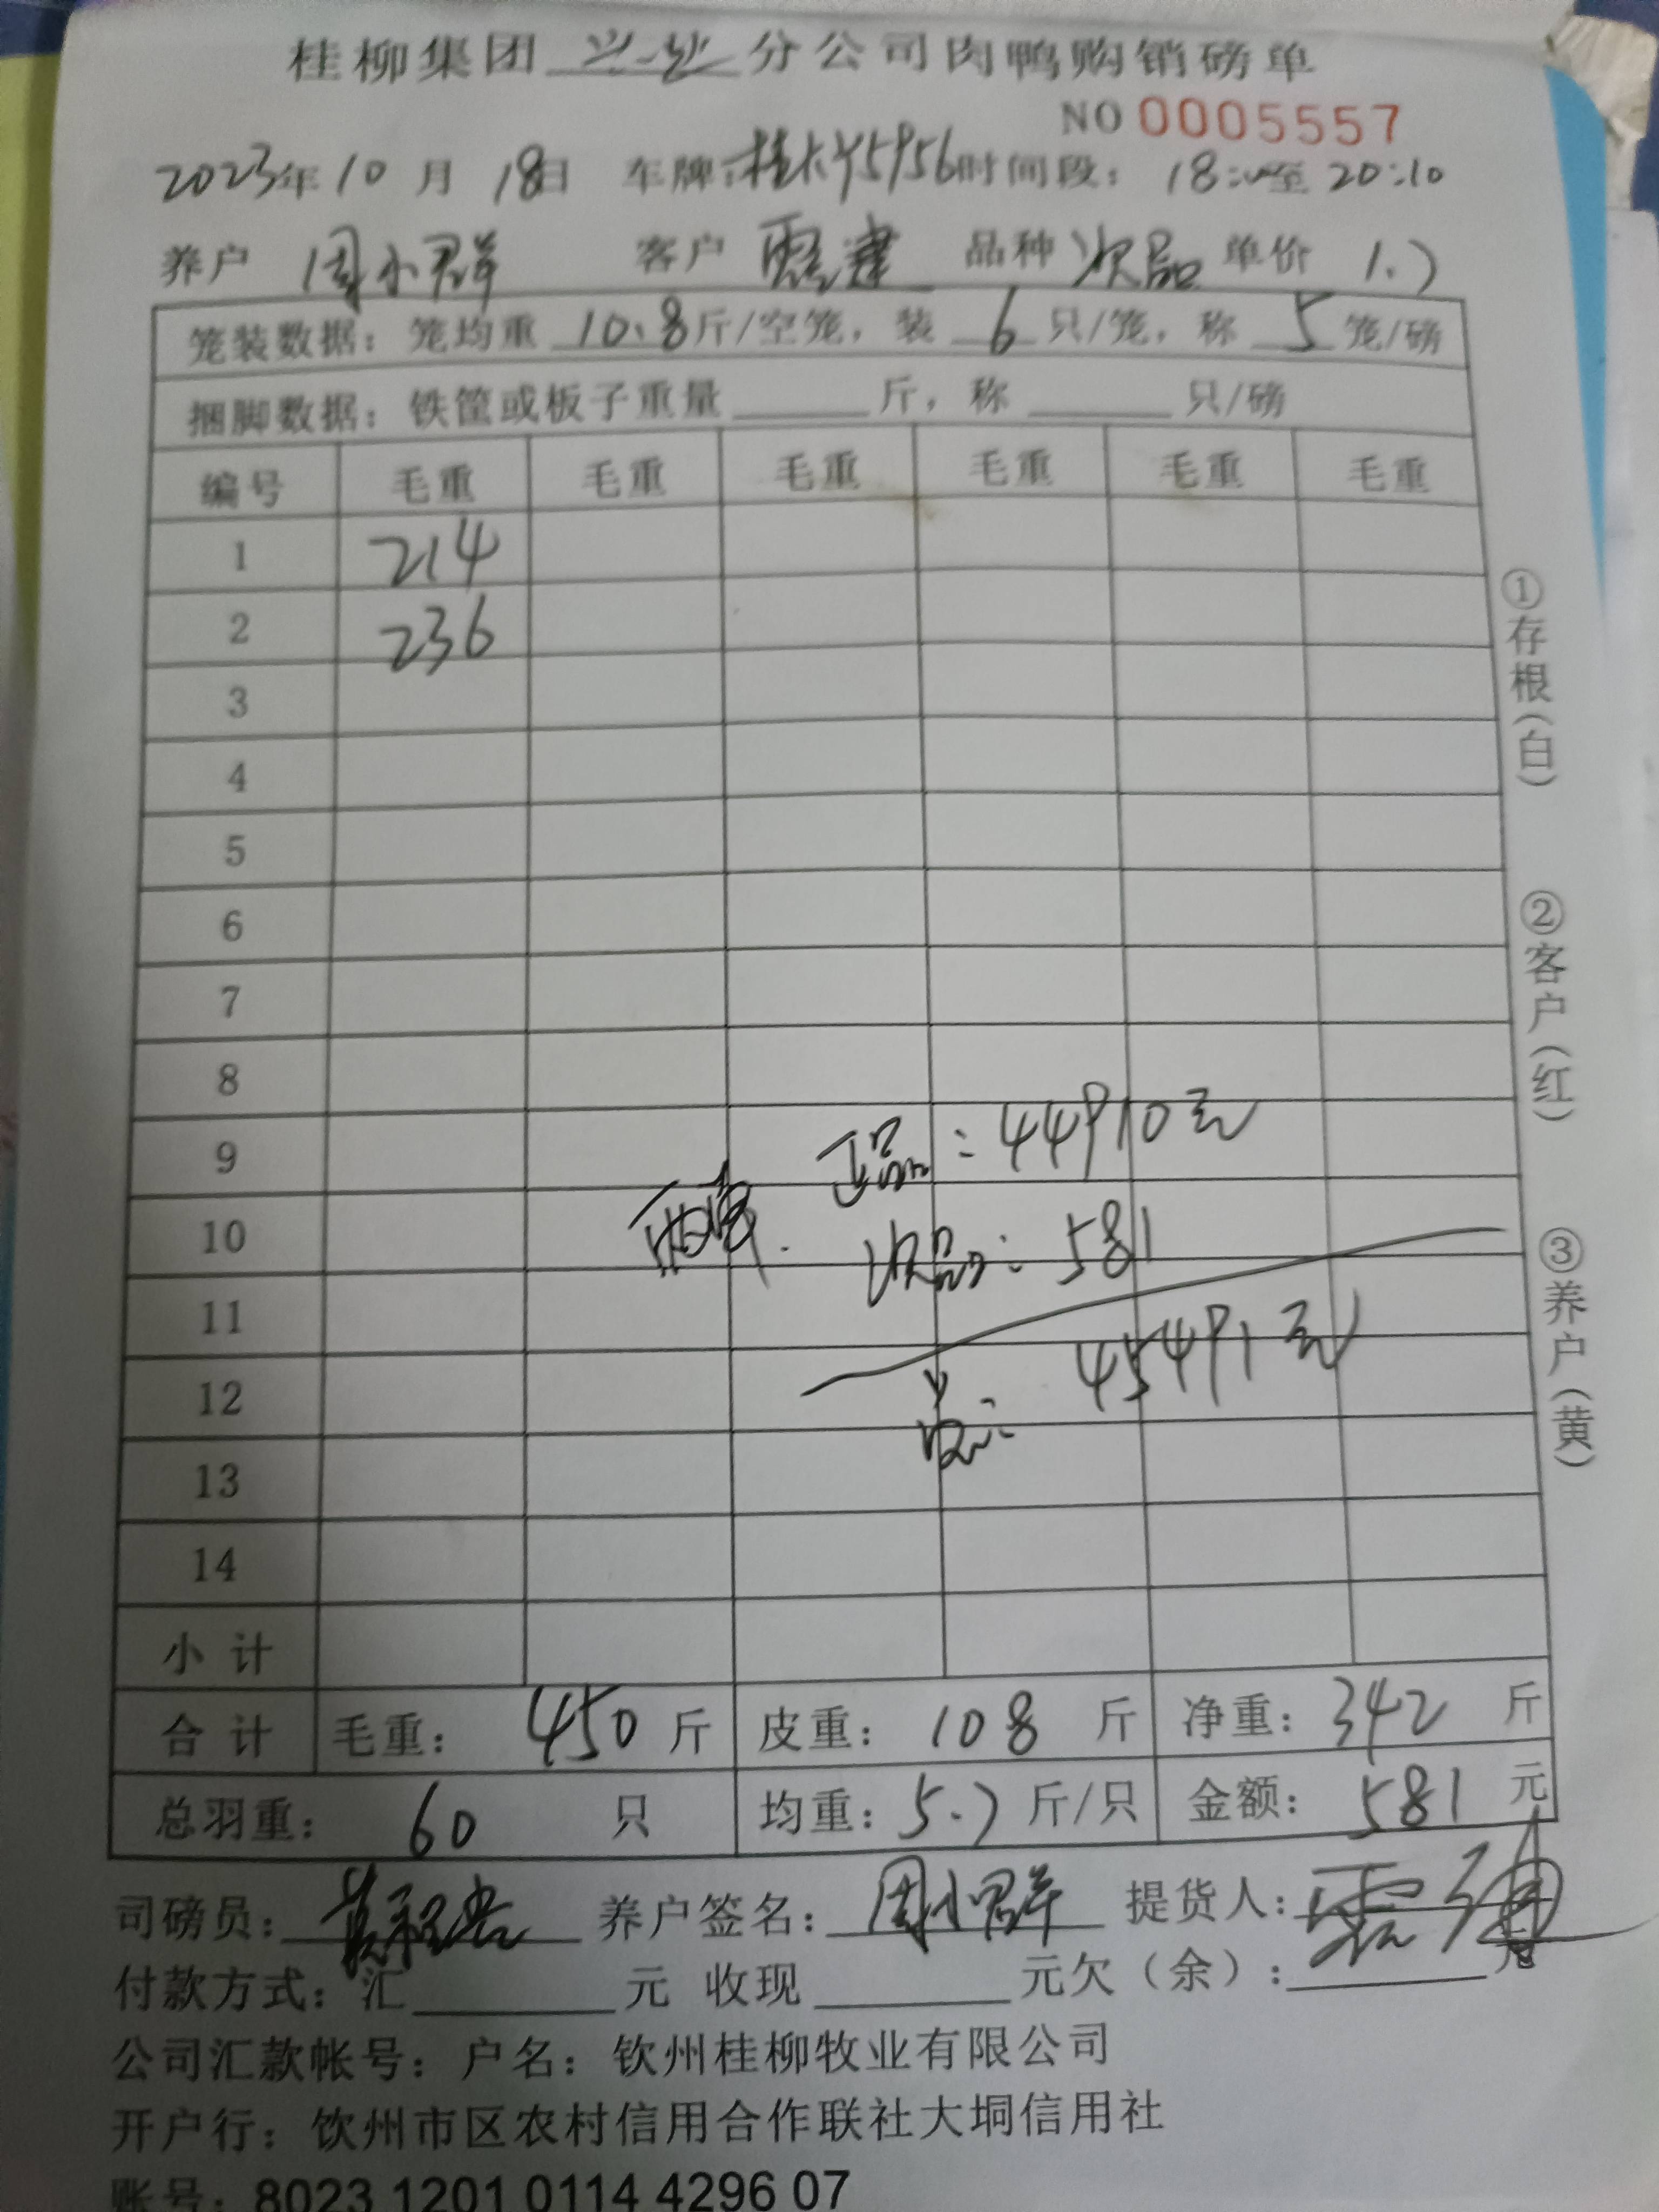 桂柳集团 分公司肉鸭购销磅单
NO 0005557
2023年10月18日 车牌: 时间段: 至 20:10
养户 周小群 客户 品种 次品 单价 1.7
笼装数据: 笼均重 10.8 斤/空笼, 装 6 只/笼, 称 5 笼/磅
捆脚数据: 铁筐或板子重量 斤, 称 只/磅
编号 毛重 毛重 毛重 毛重 毛重 毛重
1 214
2 236
3
4
5
6
7
8
9
正品: 44910元
10
次品: 581
11
45491元
12
13
14
小计
合计 毛重: 450 斤 皮重: 108 斤 净重: 342 斤
总羽重: 60 只 均重: 5.7 斤/只 金额: 581 元
司磅员: 养户签名: 周小群 提货人:
付款方式: 汇 元 收现 元欠(余): 元
公司汇款帐号: 户名: 钦州桂柳牧业有限公司
开户行: 钦州市区农村信用合作联社大垌信用社
账号: 8023 1201 0114 4296 07
①存根(白)
②客户(红)
③养户(黄)